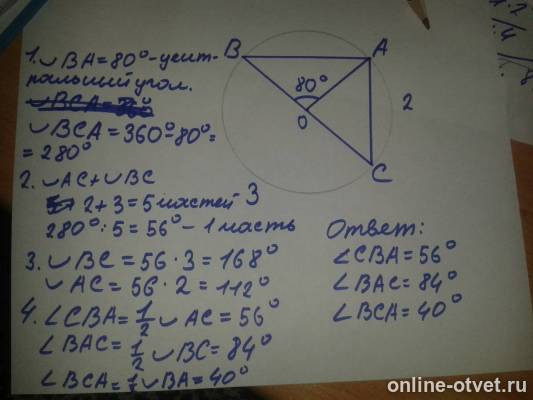 1. ◡BA = 80° - цент-
ральный угол.
◡BCA = 360°
◡BCA = 360° - 80° =
= 280°
2. ◡AC + ◡BC
2 + 3 = 5 частей
280° : 5 = 56° - 1 часть
3. ◡BC = 56 · 3 = 168°
◡AC = 56 · 2 = 112°
4. ∠CBA = 1/2 ◡AC = 56°
∠BAC = 1/2 ◡BC = 84°
∠BCA = 1/2 ◡BA = 40°
B
A
80°
O
2
C
3
Ответ:
∠CBA = 56°
∠BAC = 84°
∠BCA = 40°
online-otvet.ru